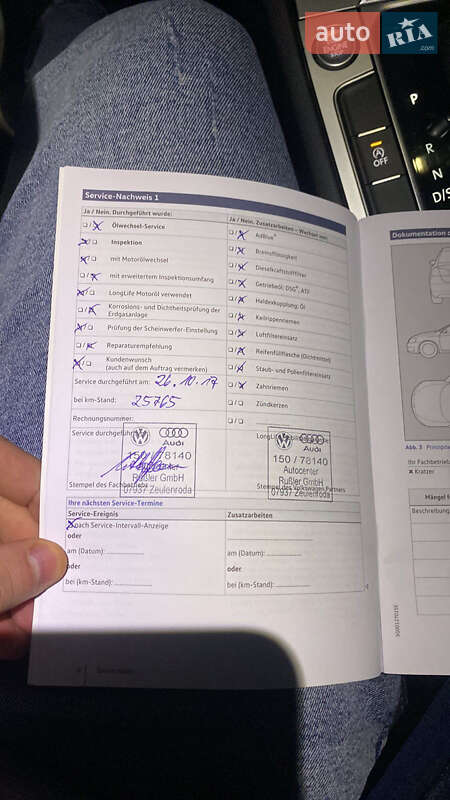 auto RIA .com
ENGINE
P
R
N
D/S
OFF
Service-Nachweis 1
Ja / Nein. Durchgeführt wurde:
☐/☒ Ölwechsel-Service
☒/☐ Inspektion
☒/☐ mit Motorölwechsel
☐/☒ mit erweitertem Inspektionsumfang
☒/☐ LongLife Motoröl verwendet
☐/☒ Korrosions- und Dichtheitsprüfung der
Erdgasanlage
☒/☐ Prüfung der Scheinwerfer-Einstellung
☐/☒ Reparaturempfehlung
☒/☐ Kundenwunsch
(auch auf dem Auftrag vermerken)
Service durchgeführt am: 26.10.17
bei km-Stand: 25765
Rechnungsnummer:
Service durchgeführt
Audi
78140
Rußler GmbH
07937 Zeulenroda
Stempel des Fachbetriebs
Ja / Nein. Zusatzarbeiten – Wechsel von:
☐/☒ AdBlue®
☐/☒ Bremsflüssigkeit
☐/☒ Dieselkraftstofffilter
☐/☒ Getriebeöl: DSG®, ATF
☐/☒ Haldexkupplung: Öl
☐/☒ Keilrippenriemen
☐/☒ Luftfiltereinsatz
☐/☒ Reifenfüllflasche (Dichtmittel)
☐/☒ Staub- und Pollenfiltereinsatz
☐/☒ Zahnriemen
☐/☐ Zündkerzen
☐/☐
Audi
150 / 78140
Autocenter
Rußler GmbH
07937 Zeulenroda
Stempel des Volkswagen Partners
Ihre nächsten Service-Termine
Service-Ereignis
☒ nach Service-Intervall-Anzeige
oder
am (Datum):
oder
bei (km-Stand):
Zusatzarbeiten
oder
bei (km-Stand):
Dokumentation
Abb. 3
Ihr Fachbetrieb
× Kratzer
Mängel
Beschreibung